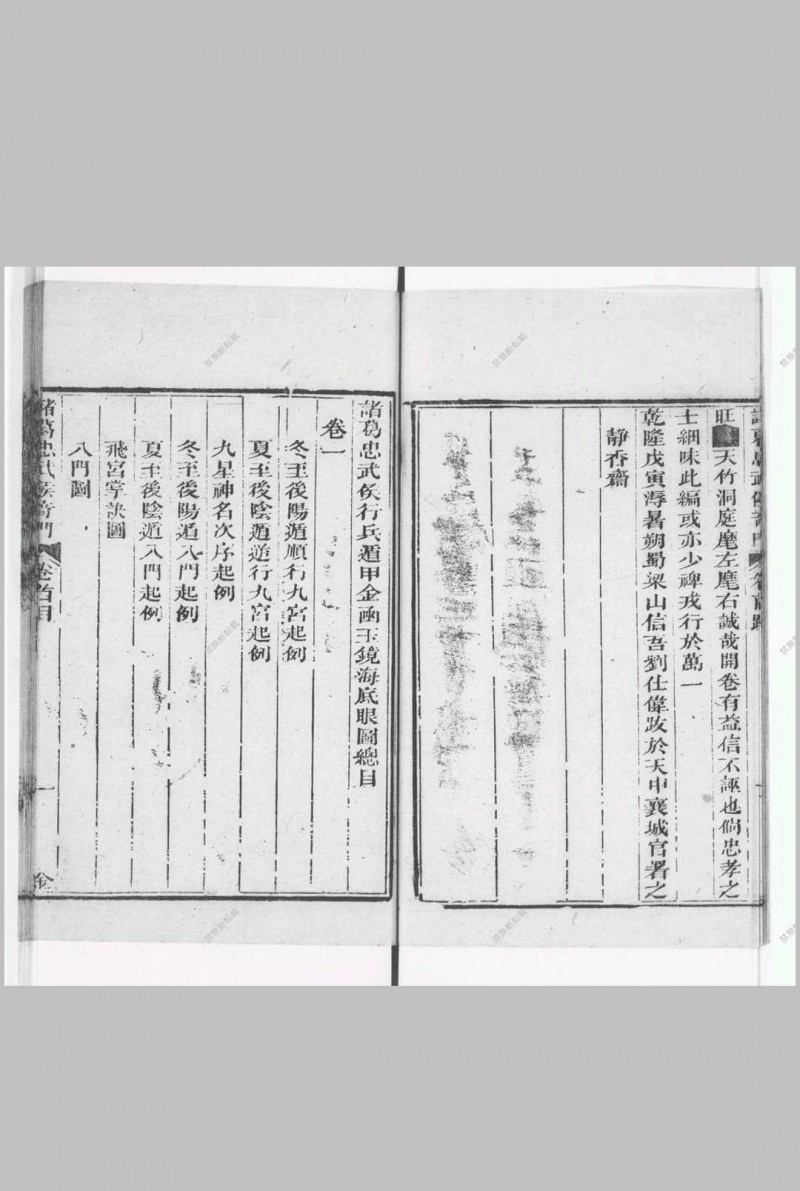 旺 天竹洞庭麾左麾右誠哉開卷有益信不誣也倘忠孝之
士細味此編或亦少裨戎行於萬一
乾隆戊寅溽暑朔蜀梁山信吾劉仕偉跋於天中襄城官署之
靜香齋
諸葛忠武侯行兵遁甲金函玉鏡海底眼圖總目
卷一
冬至後陽遁順行九宮起例
夏至後陰遁逆行九宮起例
九星神名次序起例
冬至後陽遁八門起例
夏至後陰遁八門起例
飛宮掌訣圖
八門圖
諸葛忠武侯奇門 卷首目 一 全